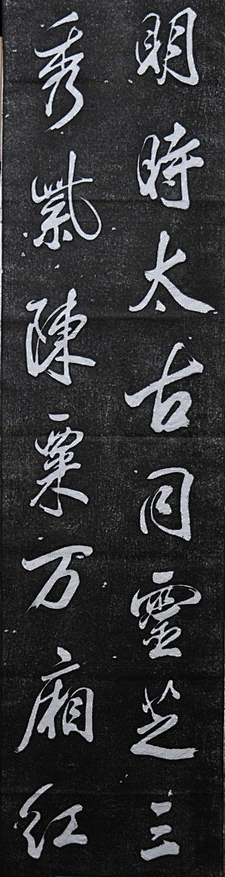 明時太古同靈芝三
秀紫陳粟万廂紅